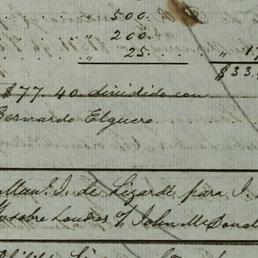 " 500.
" 200.
" 25. " 1
$33.
$77.40 dividido con
Bernardo Elguero.
Man. J. de Lizardi, para J.
Londres John McDon